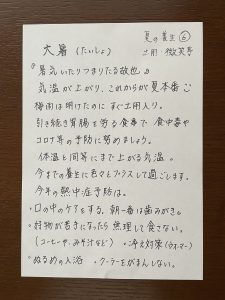 夏の養生⑥
土用・微笑亭
大暑（たいしょ）
『暑気いたりつまりたる故也』
気温が上がり、これからが夏本番。
梅雨は明けたのに すぐ土用入り。
引き続き胃腸を労る食事で 食中毒や
コロナ等の予防に努めましょう。
体温と同等にまで上がる気温。
今までの養生に色々とプラスして過ごします。
今年の熱中症予防は。
・口の中のケアをする。朝一番は歯みがき。
・付物が苦手になったら 無理して食さない。
（コーヒーや、みそ汁など） ・冷え対策
・ぬるめの入浴 ・クーラーをがまんしない。